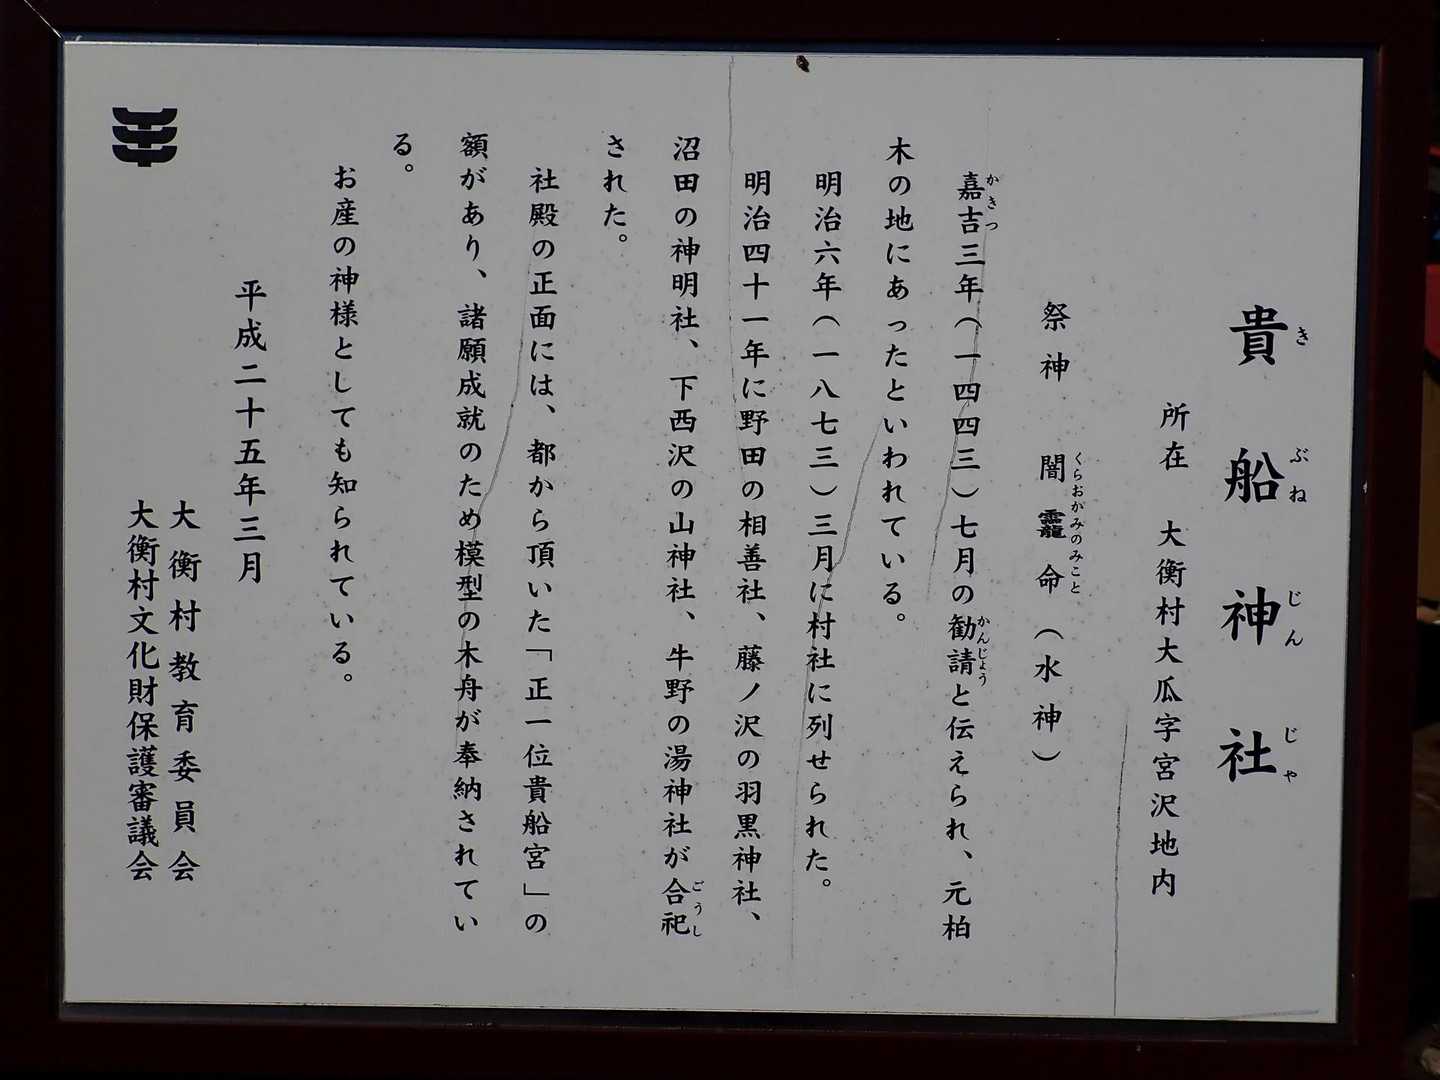 貴船神社
きぶねじんじゃ
所在　大衡村大瓜字宮沢地内
祭神　闇龗命（水神）
くらおかみのみこと
嘉吉三年（一四四三）七月の勧請と伝えられ、元柏
かきつ
かんじょう
木の地にあったといわれている。
明治六年（一八七三）三月に村社に列せられた。
明治四十一年に野田の相善社、藤ノ沢の羽黒神社、
沼田の神明社、下西沢の山神社、牛野の湯神社が合祀
ごうし
された。
社殿の正面には、都から頂いた「正一位貴船宮」の
額があり、諸願成就のため模型の木舟が奉納されてい
る。
お産の神様としても知られている。
平成二十五年三月
大衡村教育委員会
大衡村文化財保護審議会